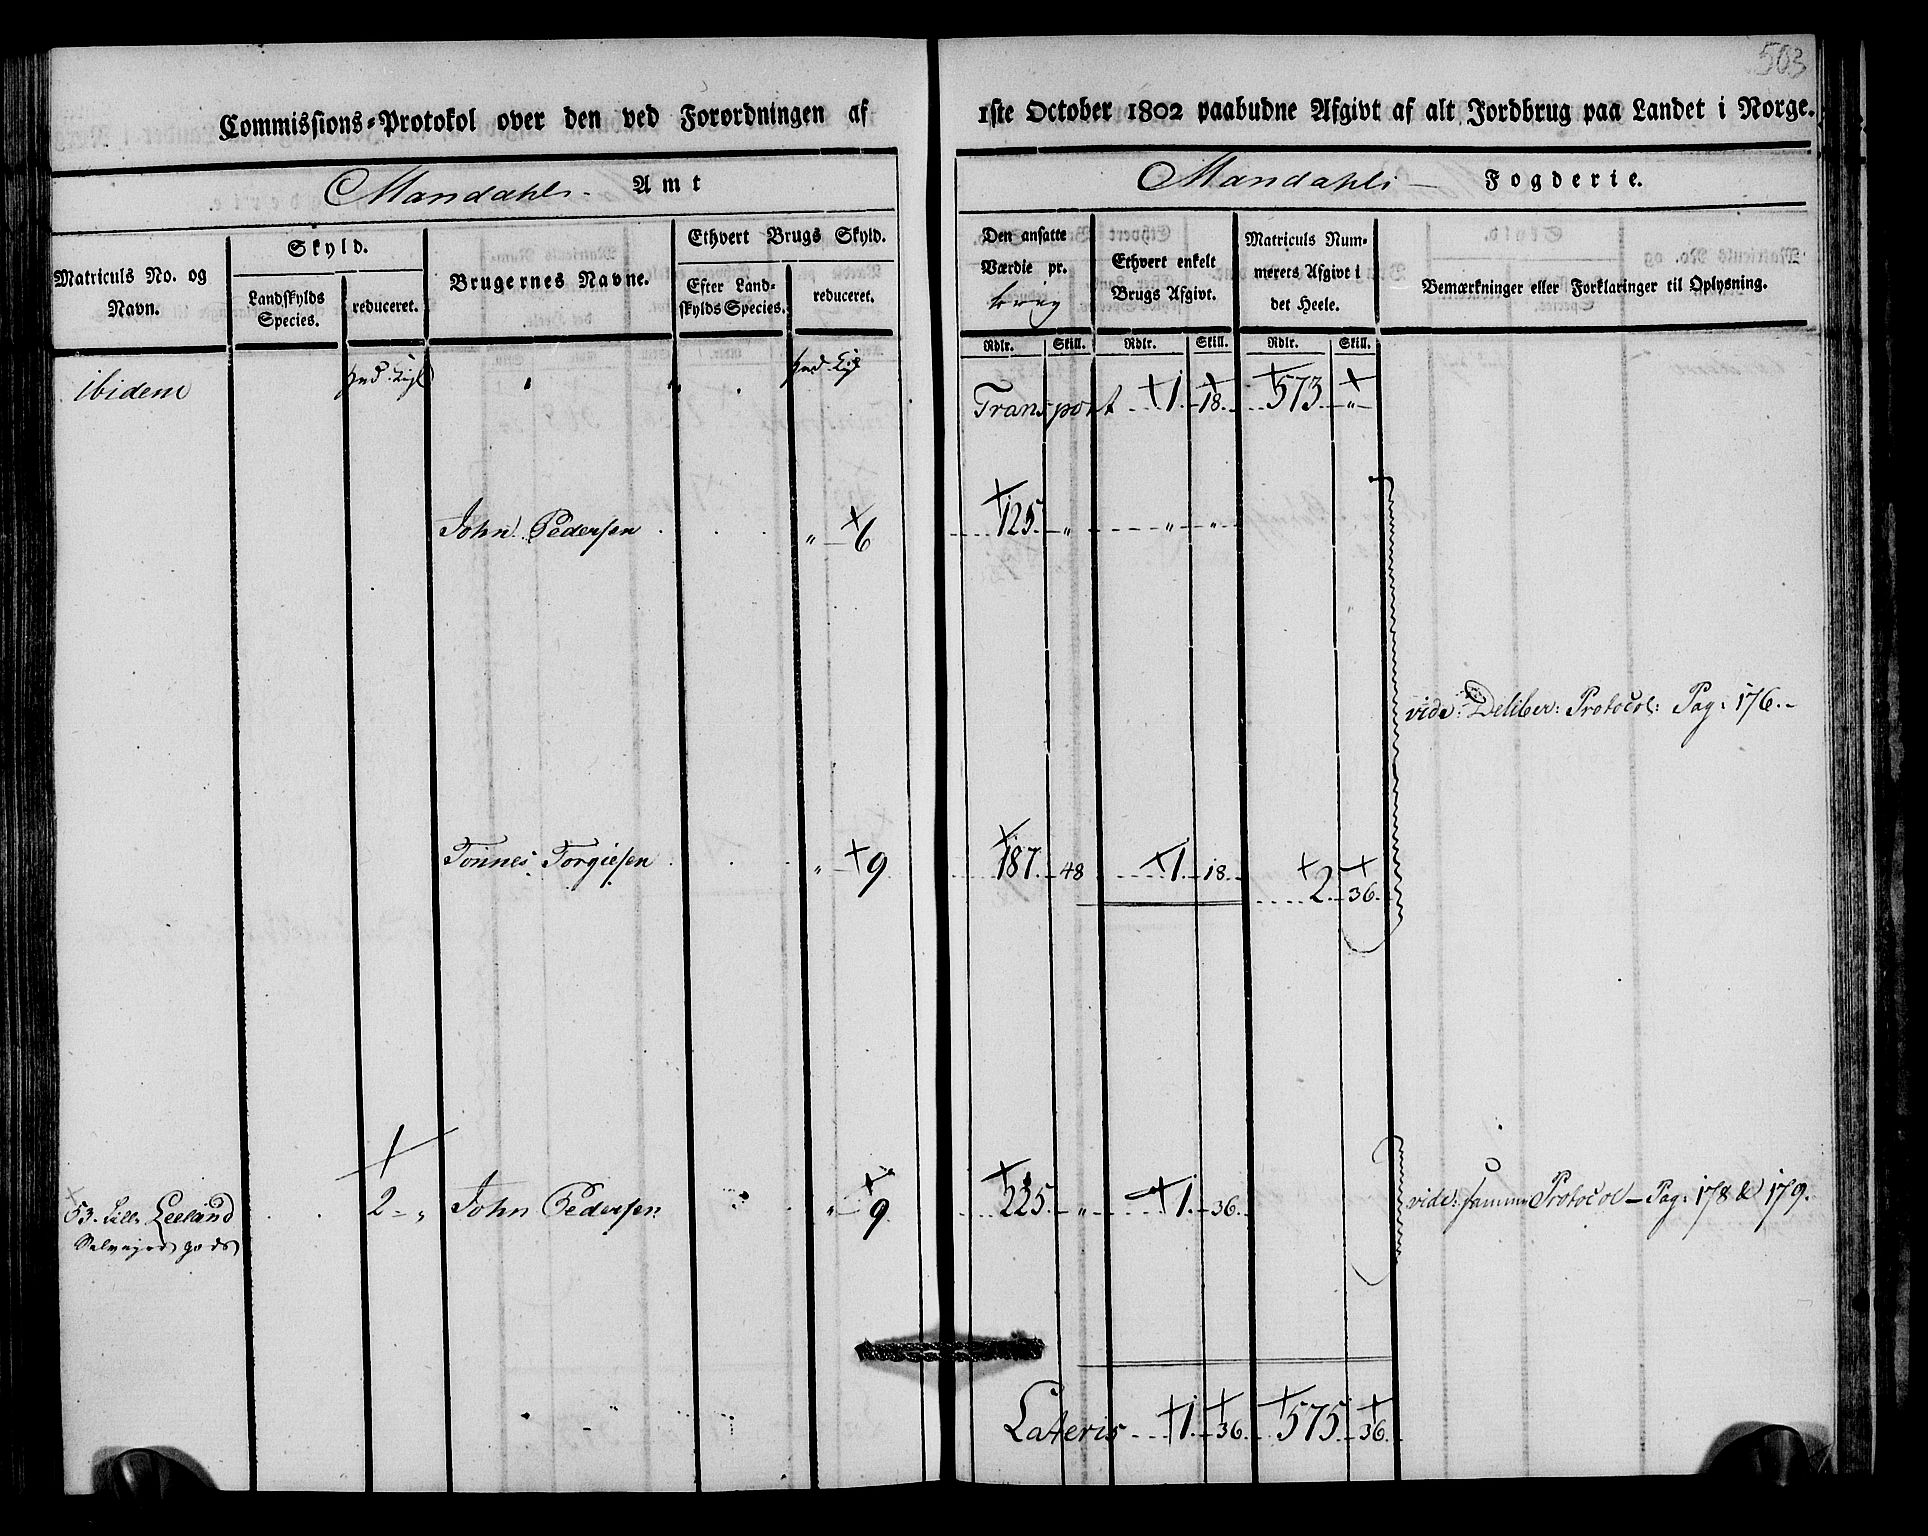 503
Commissions-Protokol over den ved Forordningen af 1ste October 1802 paabudne Afgivt af alt Jordbrug paa Landet i Norge.
Mandahls Amt
Mandahls Fogderie.
Matriculs No. og Navn.
Skyld.
Landskylds Species.
reduceret.
Brugernes Navne.
Ethvert Brugs Skyld.
Efter Landskylds Species.
reduceret.
Den ansatte Værdie pr.
Ethvert enkelt Brugs Afgivt.
Matriculs Nummerets Afgivt i det Heele.
Bemærkninger eller Forklaringer til Oplysning.
Rdlr. Skill. Rdlr. Skill. Rdlr. Skill.
ibidem
Transport 1 18 573 "
John Pedersen " 6 125 " " "
vide: Deliber: Protocol: Pag: 176.
Tönnes Torgiesen " 9 187 48 1 18 2 36
53. Lille Leeland 2 " John Pedersen " 9 225 " 1 36 vide: samme Protocol Pag: 178 & 179.
Selvejer gods
Lateris 1 36 575 36